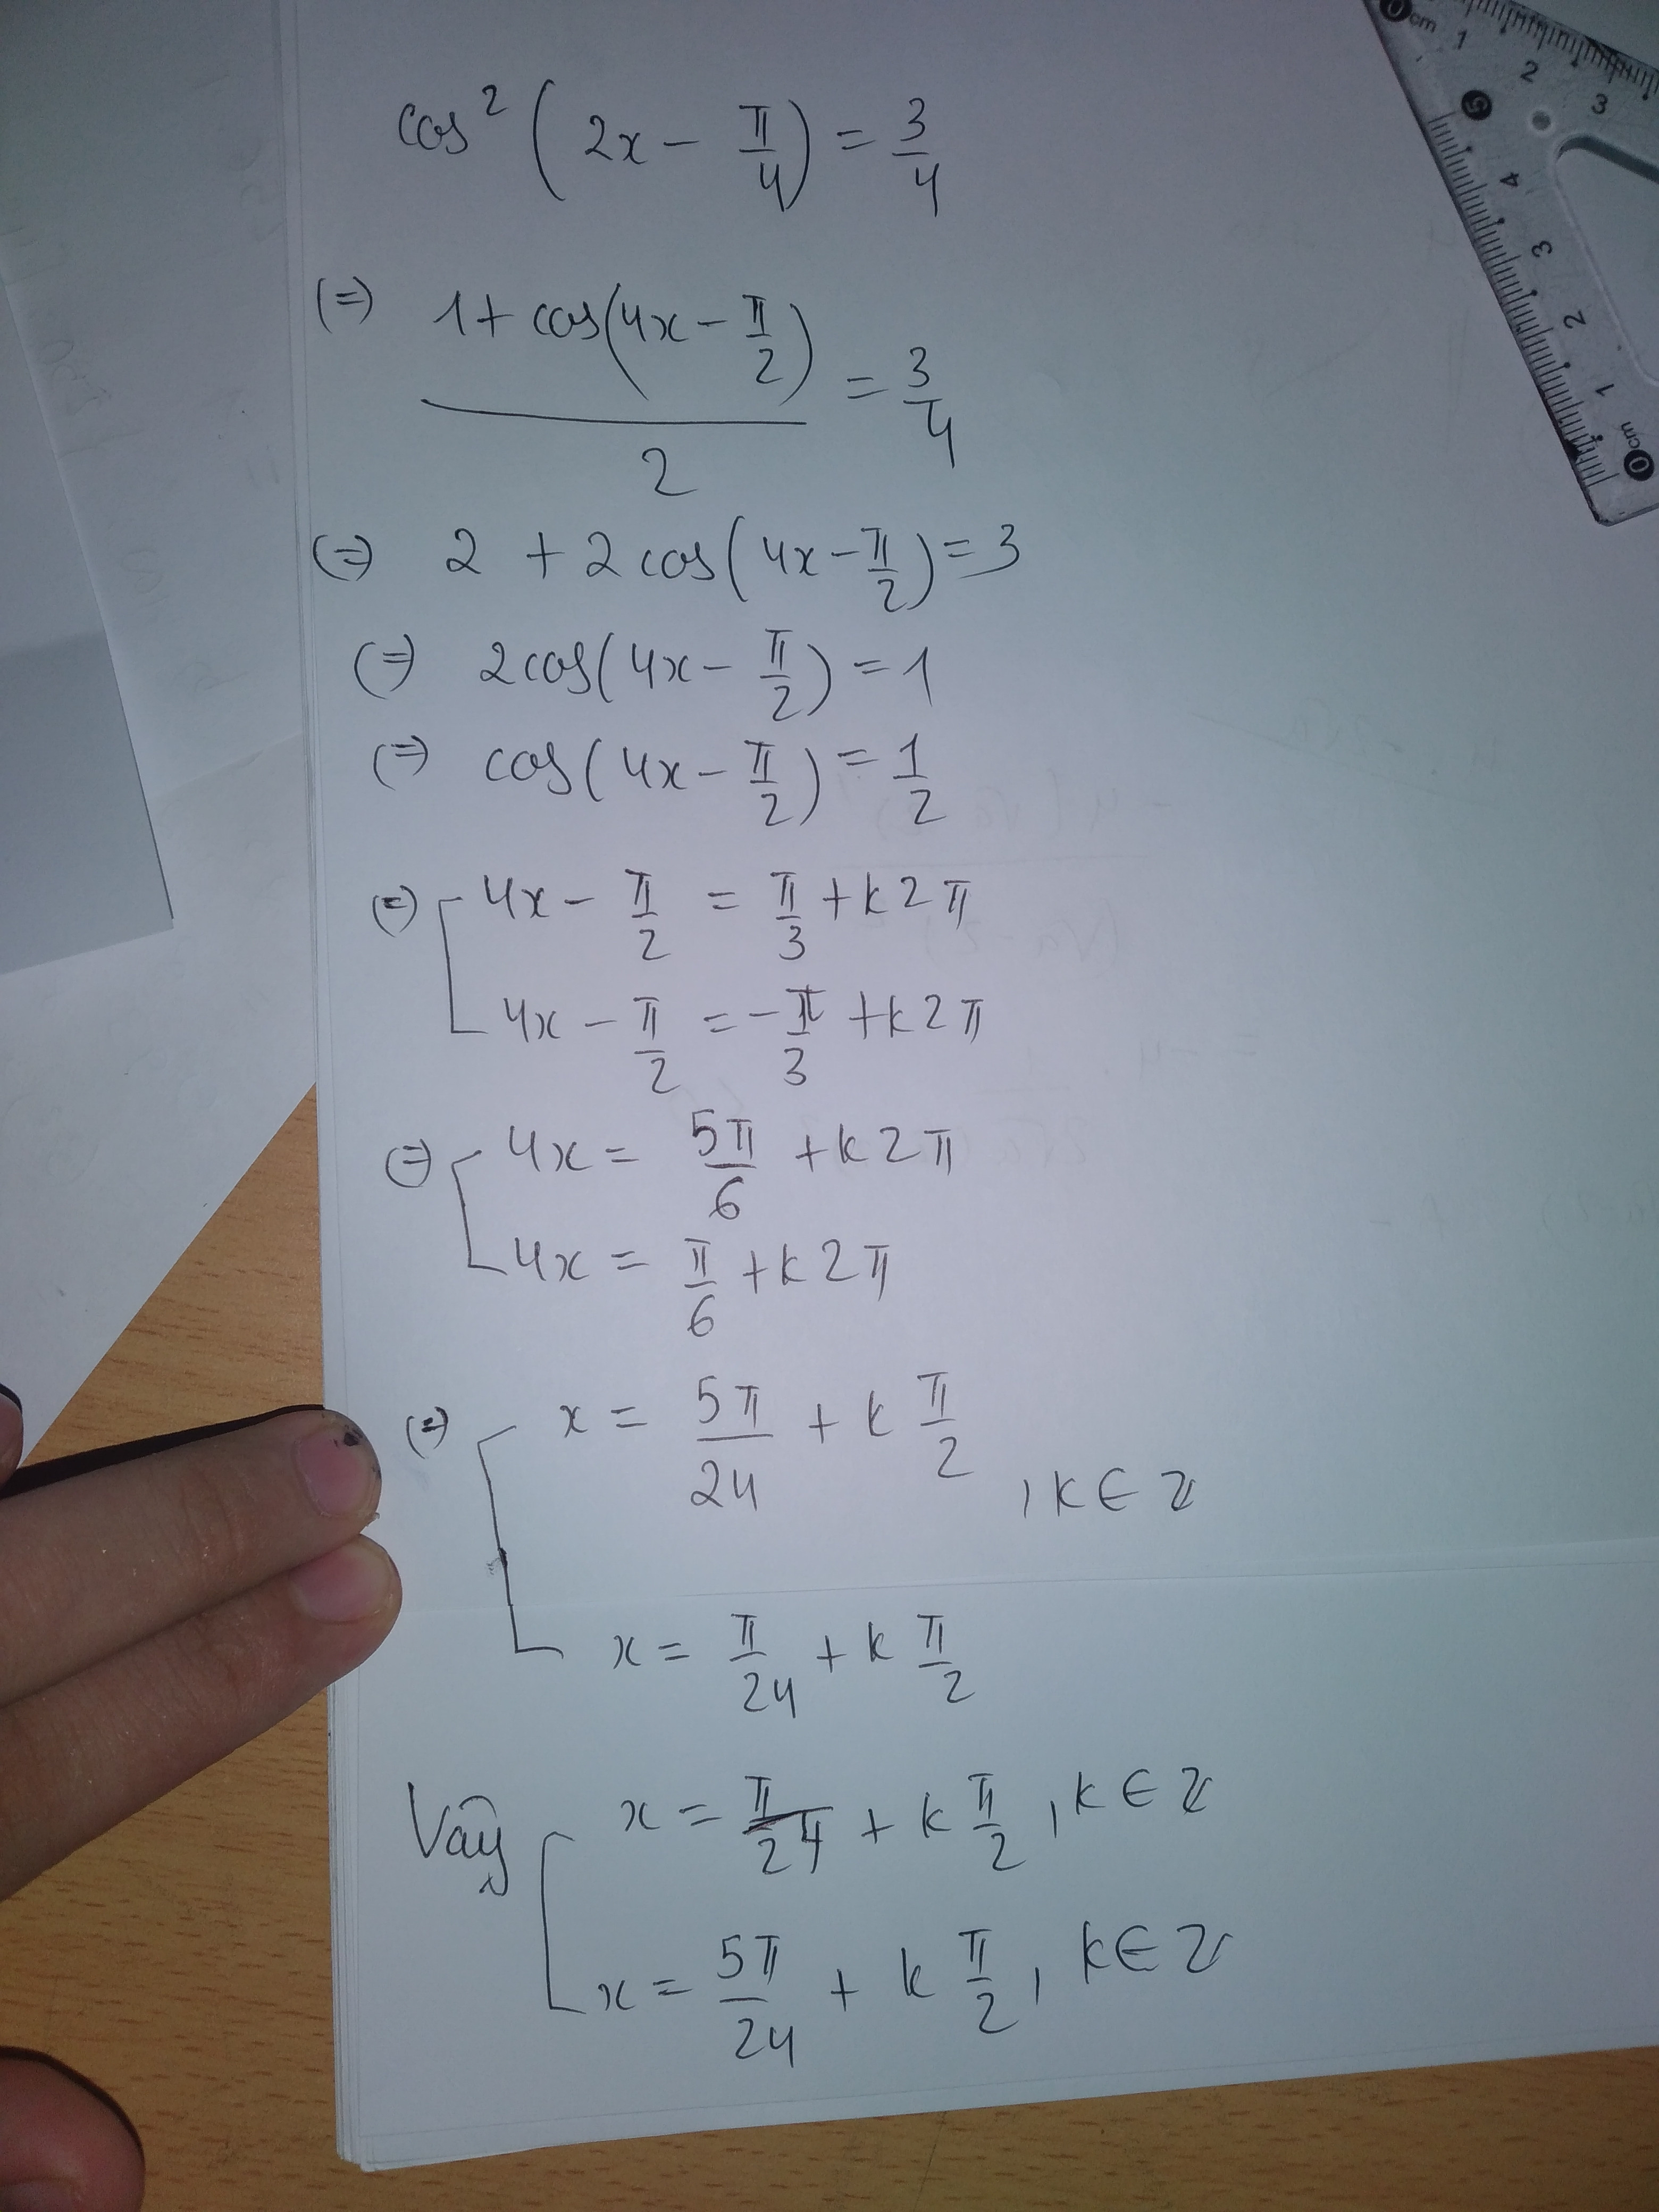 cos² (2x - π/4) = 3/4
(=) (1 + cos(4x - π/2))/2 = 3/4
(=) 2 + 2cos(4x - π/2) = 3
(=) 2cos(4x - π/2) = 1
(=) cos(4x - π/2) = 1/2
(=) [ 4x - π/2 = π/3 + k2π
4x - π/2 = -π/3 + k2π
(=) [ 4x = 5π/6 + k2π
4x = π/6 + k2π
(=) [ x = 5π/24 + k π/2
, k ∈ Z
x = π/24 + k π/2
Vậy [ x = π/24 + k π/2, k ∈ Z
x = 5π/24 + k π/2, k ∈ Z
0cm 1 2 3
5 4 3 2 1 0cm